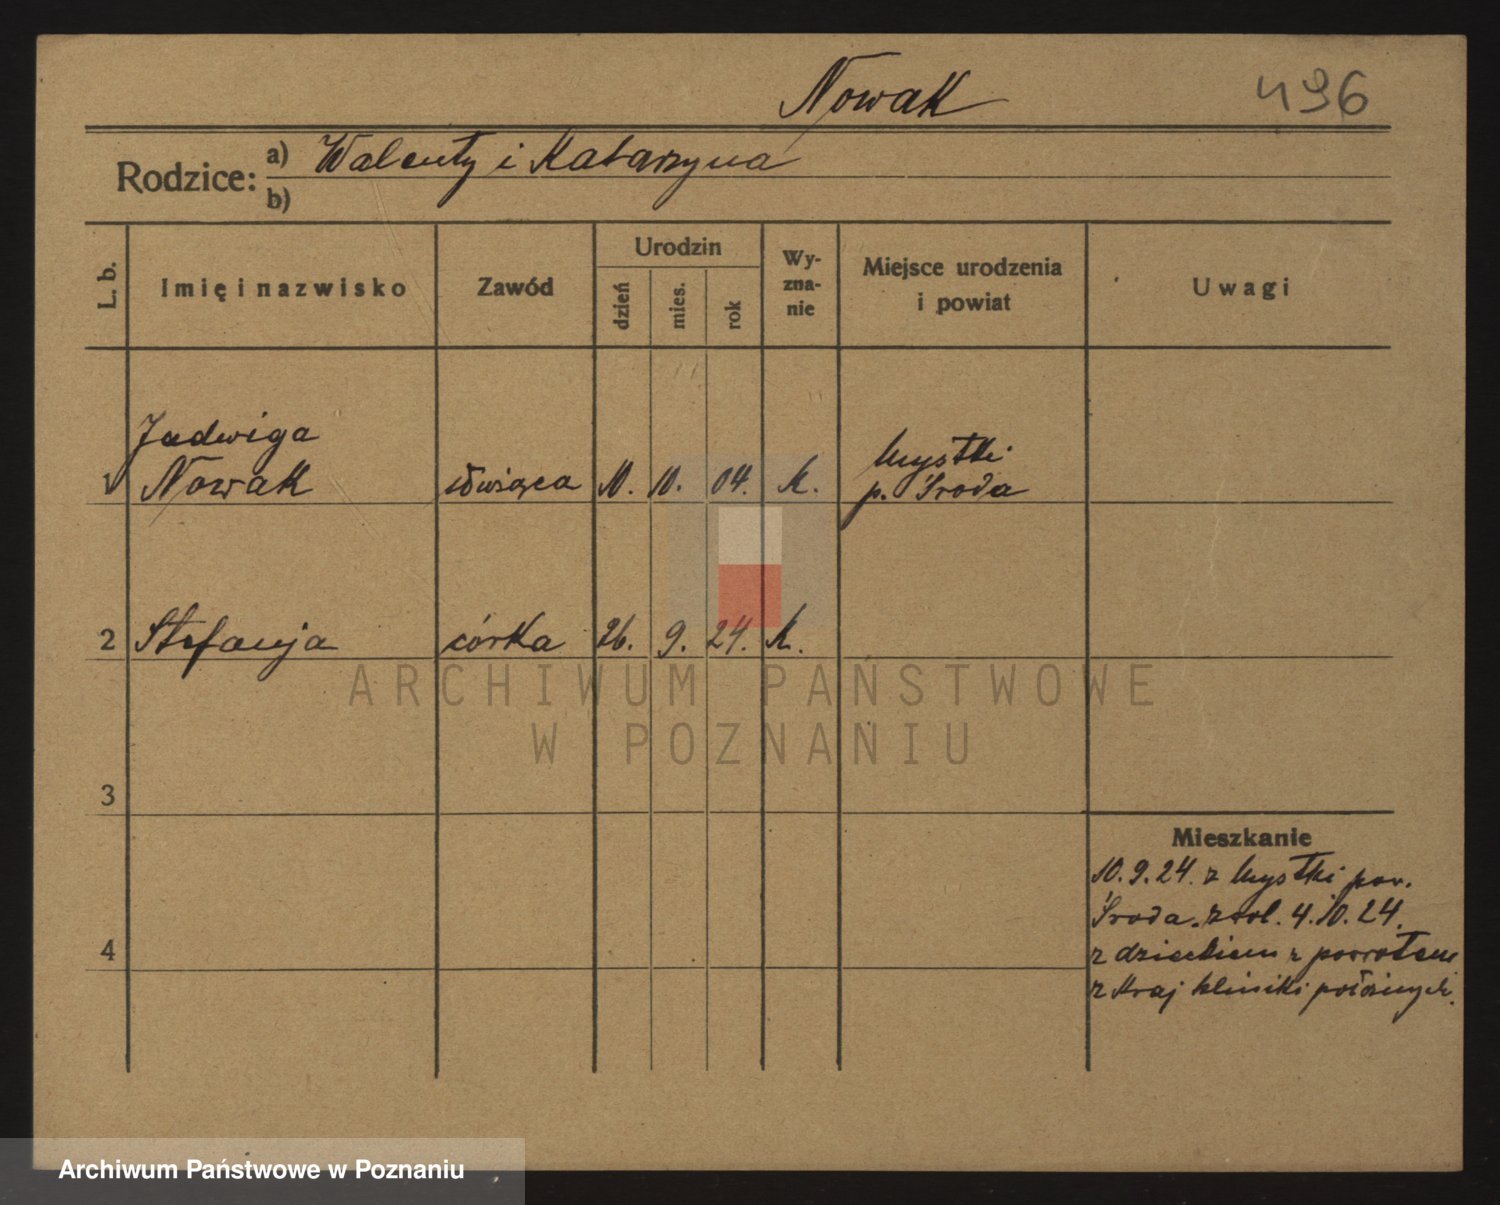 Nowak
496
Rodzice:
a) Walenty i Katarzyna
b)
L. b.
Imię i nazwisko
Zawód
Urodzin
dzień
mies.
rok
Wy-
zna-
nie
Miejsce urodzenia
i powiat
Uwagi
Jadwiga
1 Nowak 10. 10. 04. k.
p. Środa
2 Stefanja córka 26. 9. 24. k.
ARCHIWUM PAŃSTWOWE
W POZNANIU
3
Mieszkanie
10.9.24. z pow.
Środa. 4.10.24.
4
z dzieckiem z powrotem
z Kraj kliniki położnych.
Archiwum Państwowe w Poznaniu